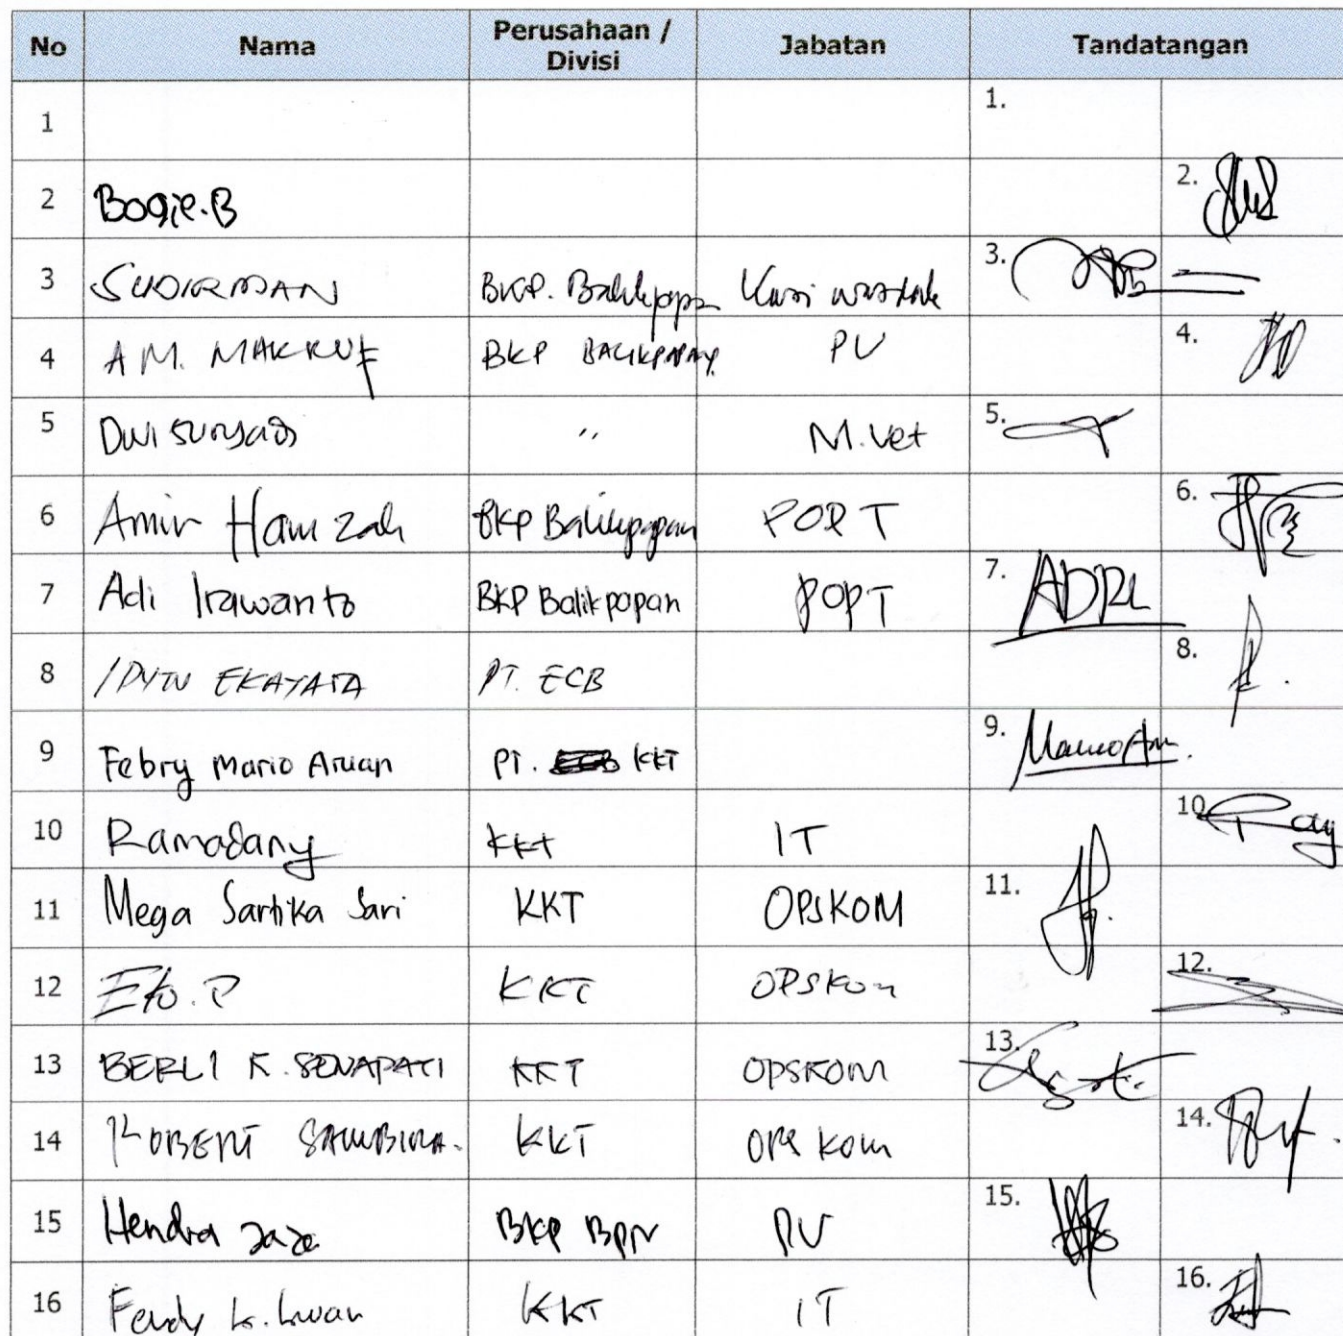 No Nama Perusahaan / Divisi Jabatan Tandatangan
1 1.
2 Bogie.B 2.
3 SUDIRMAN BKP. Balikpapan Kasi wastak 3.
4 A M. MAKRUF BKP BALIKPAPAN PV 4.
5 Dwi suryadi " M.Vet 5.
6 Amir Hamzah BKP Balikpapan POPT 6.
7 Adi Irawanto BKP Balikpapan POPT 7.
8 EKAYATA PT. ECB 8.
9 Febry Mario Aruan PT. KKT 9.
10 Ramadany KKT IT 10.
11 Mega Sartika Sari KKT OPSKOM 11.
12 Eko.P KKT OPSKOM 12.
13 BERLI K. SENAPATI KKT OPSKOM 13.
14 ROBERT KKT OPS KOM 14.
15 Hendra BKP BPN PV 15.
16 Fendy KKT IT 16.